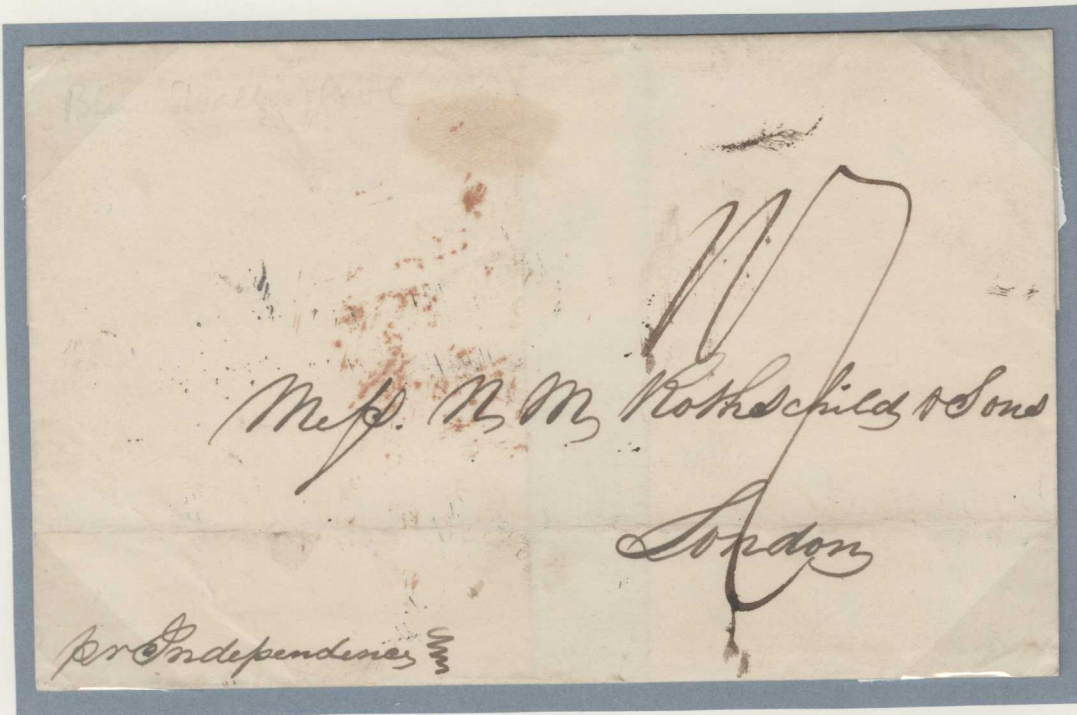 Mess. N, M, Rothschild & Sons
London
pr Independence